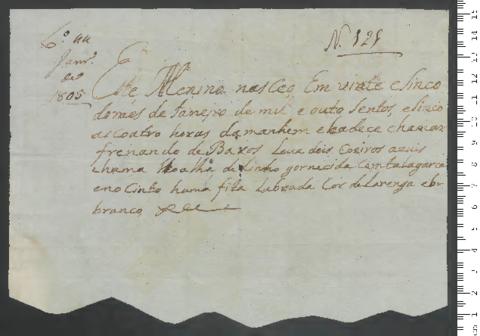 Nº 121
Janrº
de
1805
Este Menino nasceo Em vinte e sinco
do mes de Janeiro de mil e outo sentos, e sinco
as coatro horas da manhem e hade ce chamar
frenando de Baros Leva dois Coeiros azuis
huma toalha de Linho gornecida
e no Cinto huma fita Labrada Cor de Laranga e
branco